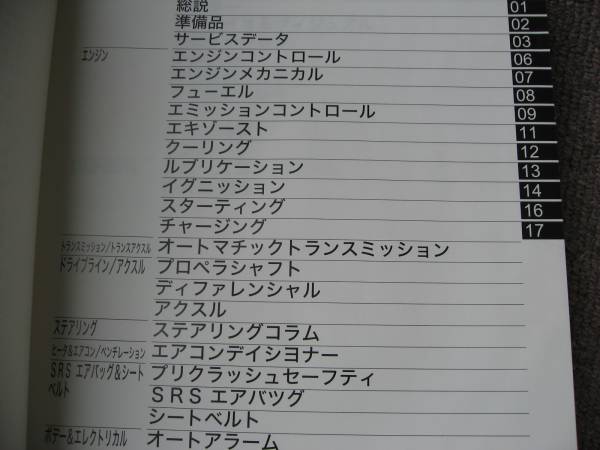 総説 01
準備品 02
サービスデータ 03
エンジン エンジンコントロール 06
エンジンメカニカル 07
フューエル 08
エミッションコントロール 09
エキゾースト 11
クーリング 12
ルブリケーション 13
イグニッション 14
スターティング 16
チャージング 17
トランスミッション/トランスアクスル オートマチックトランスミッション
ドライブライン/アクスル プロペラシャフト
ディファレンシャル
アクスル
ステアリング ステアリングコラム
ヒータ&エアコン/ベンチレーション エアコンデイシヨナー
SRS エアバッグ&シート プリクラッシュセーフティ
ベルト
SRS エアバツグ
シートベルト
ボデー&エレクトリカル オートアラーム